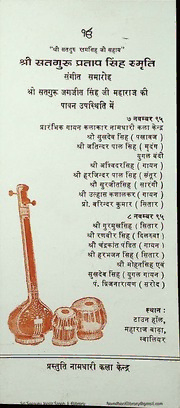 ੴ
"श्री सतगुरु रामसिंह जी सहाय"
श्री सतगुरु प्रताप सिंह स्मृति
संगीत समारोह
श्री सतगुरु जगजीत सिंह जी महाराज की
पावन उपस्थिति में
७ नवम्बर ९५
प्रारंभिक गायन कलाकार नामधारी कला केन्द्र
श्री सुखदेव सिंह ( पखावज )
श्री जतिन्दर पाल सिंह ( मृदंग )
युगल बंदी
श्री अश्विदरसिंह ( गायन )
श्री हरजिन्दर पाल सिंह ( संतूर )
श्री सुरजीतसिंह ( सारंगी )
श्री उल्हास कशालकर ( गायन )
प्रो. वरिन्दर कुमार ( सितार )
८ नवम्बर ९५
श्री गुरमुखसिंह ( सितार )
श्री रणवीर सिंह ( दिलरुबा )
श्री चंद्रकांत पंडित ( गायन )
श्री हरभजन सिंह ( सितार )
श्री मोहनसिंह एवं
सुखदेव सिंह ( युगल गायन )
पं. ब्रिजनारायण ( सरोद )
स्थान :
टाउन हॉल,
महाराज बाड़ा,
ग्वालियर
प्रस्तुति नामधारी कला केन्द्र
Sri Satguru Jagjit Singh Ji eLibrary
NamdhariElibrary@gmail.com